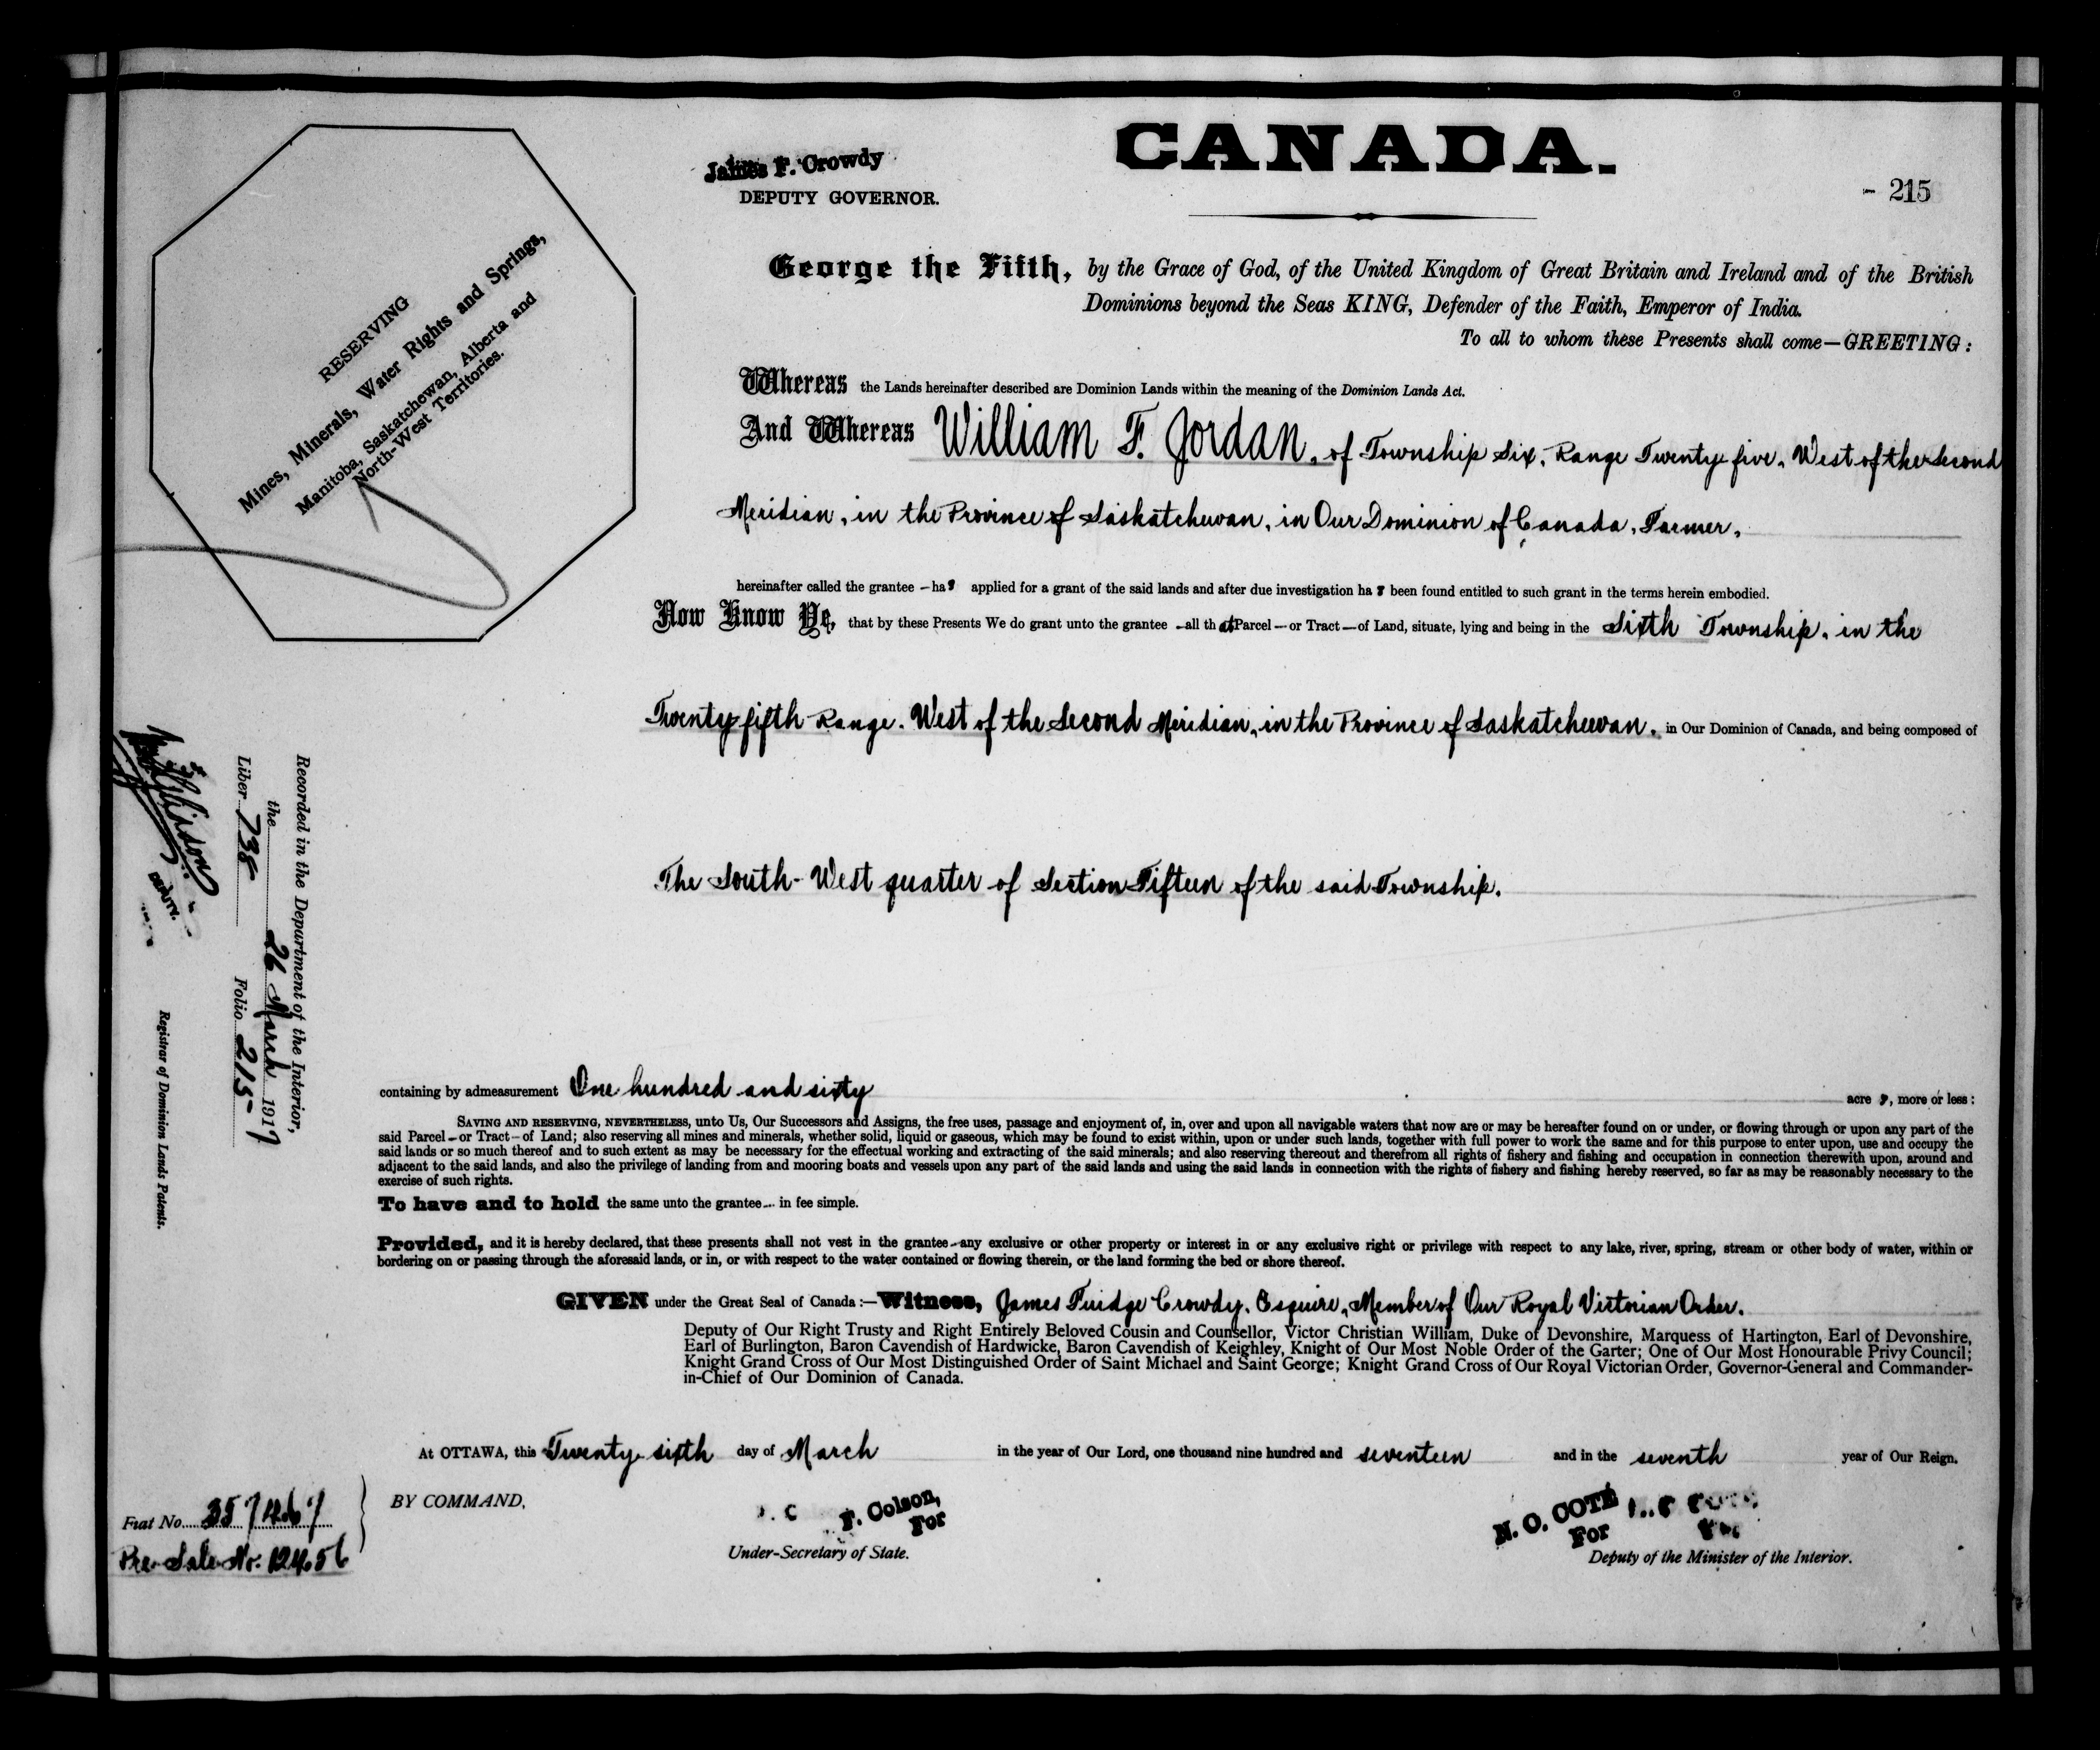 CANADA.
James F. Crowdy
DEPUTY GOVERNOR.
- 215
RESERVING
Mines, Minerals, Water Rights and Springs,
Manitoba, Saskatchewan, Alberta and
North-West Territories.
George the Fifth, by the Grace of God, of the United Kingdom of Great Britain and Ireland and of the British
Dominions beyond the Seas KING, Defender of the Faith, Emperor of India.
To all to whom these Presents shall come—GREETING:
Whereas the Lands hereinafter described are Dominion Lands within the meaning of the Dominion Lands Act.
And Whereas William F. Jordan, of Township Six, Range Twenty-five, West of the Second
Meridian, in the Province of Saskatchewan, in Our Dominion of Canada, Farmer,
hereinafter called the grantee - has applied for a grant of the said lands and after due investigation has been found entitled to such grant in the terms herein embodied.
Now Know Ye, that by these Presents We do grant unto the grantee - all that Parcel - or Tract - of Land, situate, lying and being in the Sixth Township, in the
Twenty-fifth Range, West of the Second Meridian, in the Province of Saskatchewan, in Our Dominion of Canada, and being composed of
The South-West quarter of Section Fifteen of the said Township.
Recorded in the Department of the Interior,
the 26 March 1917
Liber 738 Folio 215
DEPUTY.
Registrar of Dominion Lands Patents.
containing by admeasurement One hundred and sixty acres, more or less:
SAVING AND RESERVING, NEVERTHELESS, unto Us, Our Successors and Assigns, the free uses, passage and enjoyment of, in, over and upon all navigable waters that now are or may be hereafter found on or under, or flowing through or upon any part of the
said Parcel - or Tract - of Land; also reserving all mines and minerals, whether solid, liquid or gaseous, which may be found to exist within, upon or under such lands, together with full power to work the same and for this purpose to enter upon, use and occupy the
said lands or so much thereof and to such extent as may be necessary for the effectual working and extracting of the said minerals; and also reserving thereout and therefrom all rights of fishery and fishing and occupation in connection therewith upon, around and
adjacent to the said lands, and also the privilege of landing from and mooring boats and vessels upon any part of the said lands and using the said lands in connection with the rights of fishery and fishing hereby reserved, so far as may be reasonably necessary to the
exercise of such rights.
To have and to hold the same unto the grantee - in fee simple.
Provided, and it is hereby declared, that these presents shall not vest in the grantee - any exclusive or other property or interest in or any exclusive right or privilege with respect to any lake, river, spring, stream or other body of water, within or
bordering on or passing through the aforesaid lands, or in, or with respect to the water contained or flowing therein, or the land forming the bed or shore thereof.
GIVEN under the Great Seal of Canada:—Witness, James Fuidge Crowdy, Esquire, Member of Our Royal Victorian Order.
Deputy of Our Right Trusty and Right Entirely Beloved Cousin and Counsellor, Victor Christian William, Duke of Devonshire, Marquess of Hartington, Earl of Devonshire,
Earl of Burlington, Baron Cavendish of Hardwicke, Baron Cavendish of Keighley, Knight of Our Most Noble Order of the Garter; One of Our Most Honourable Privy Council;
Knight Grand Cross of Our Most Distinguished Order of Saint Michael and Saint George; Knight Grand Cross of Our Royal Victorian Order, Governor-General and Commander-
in-Chief of Our Dominion of Canada.
At OTTAWA, this Twenty-sixth day of March in the year of Our Lord, one thousand nine hundred and seventeen and in the seventh year of Our Reign.
BY COMMAND,
F. Colson,
For
Under-Secretary of State.
N. O. COTÉ
For
Deputy of the Minister of the Interior.
Fiat No. 357467
Pre-Sale No. 12456